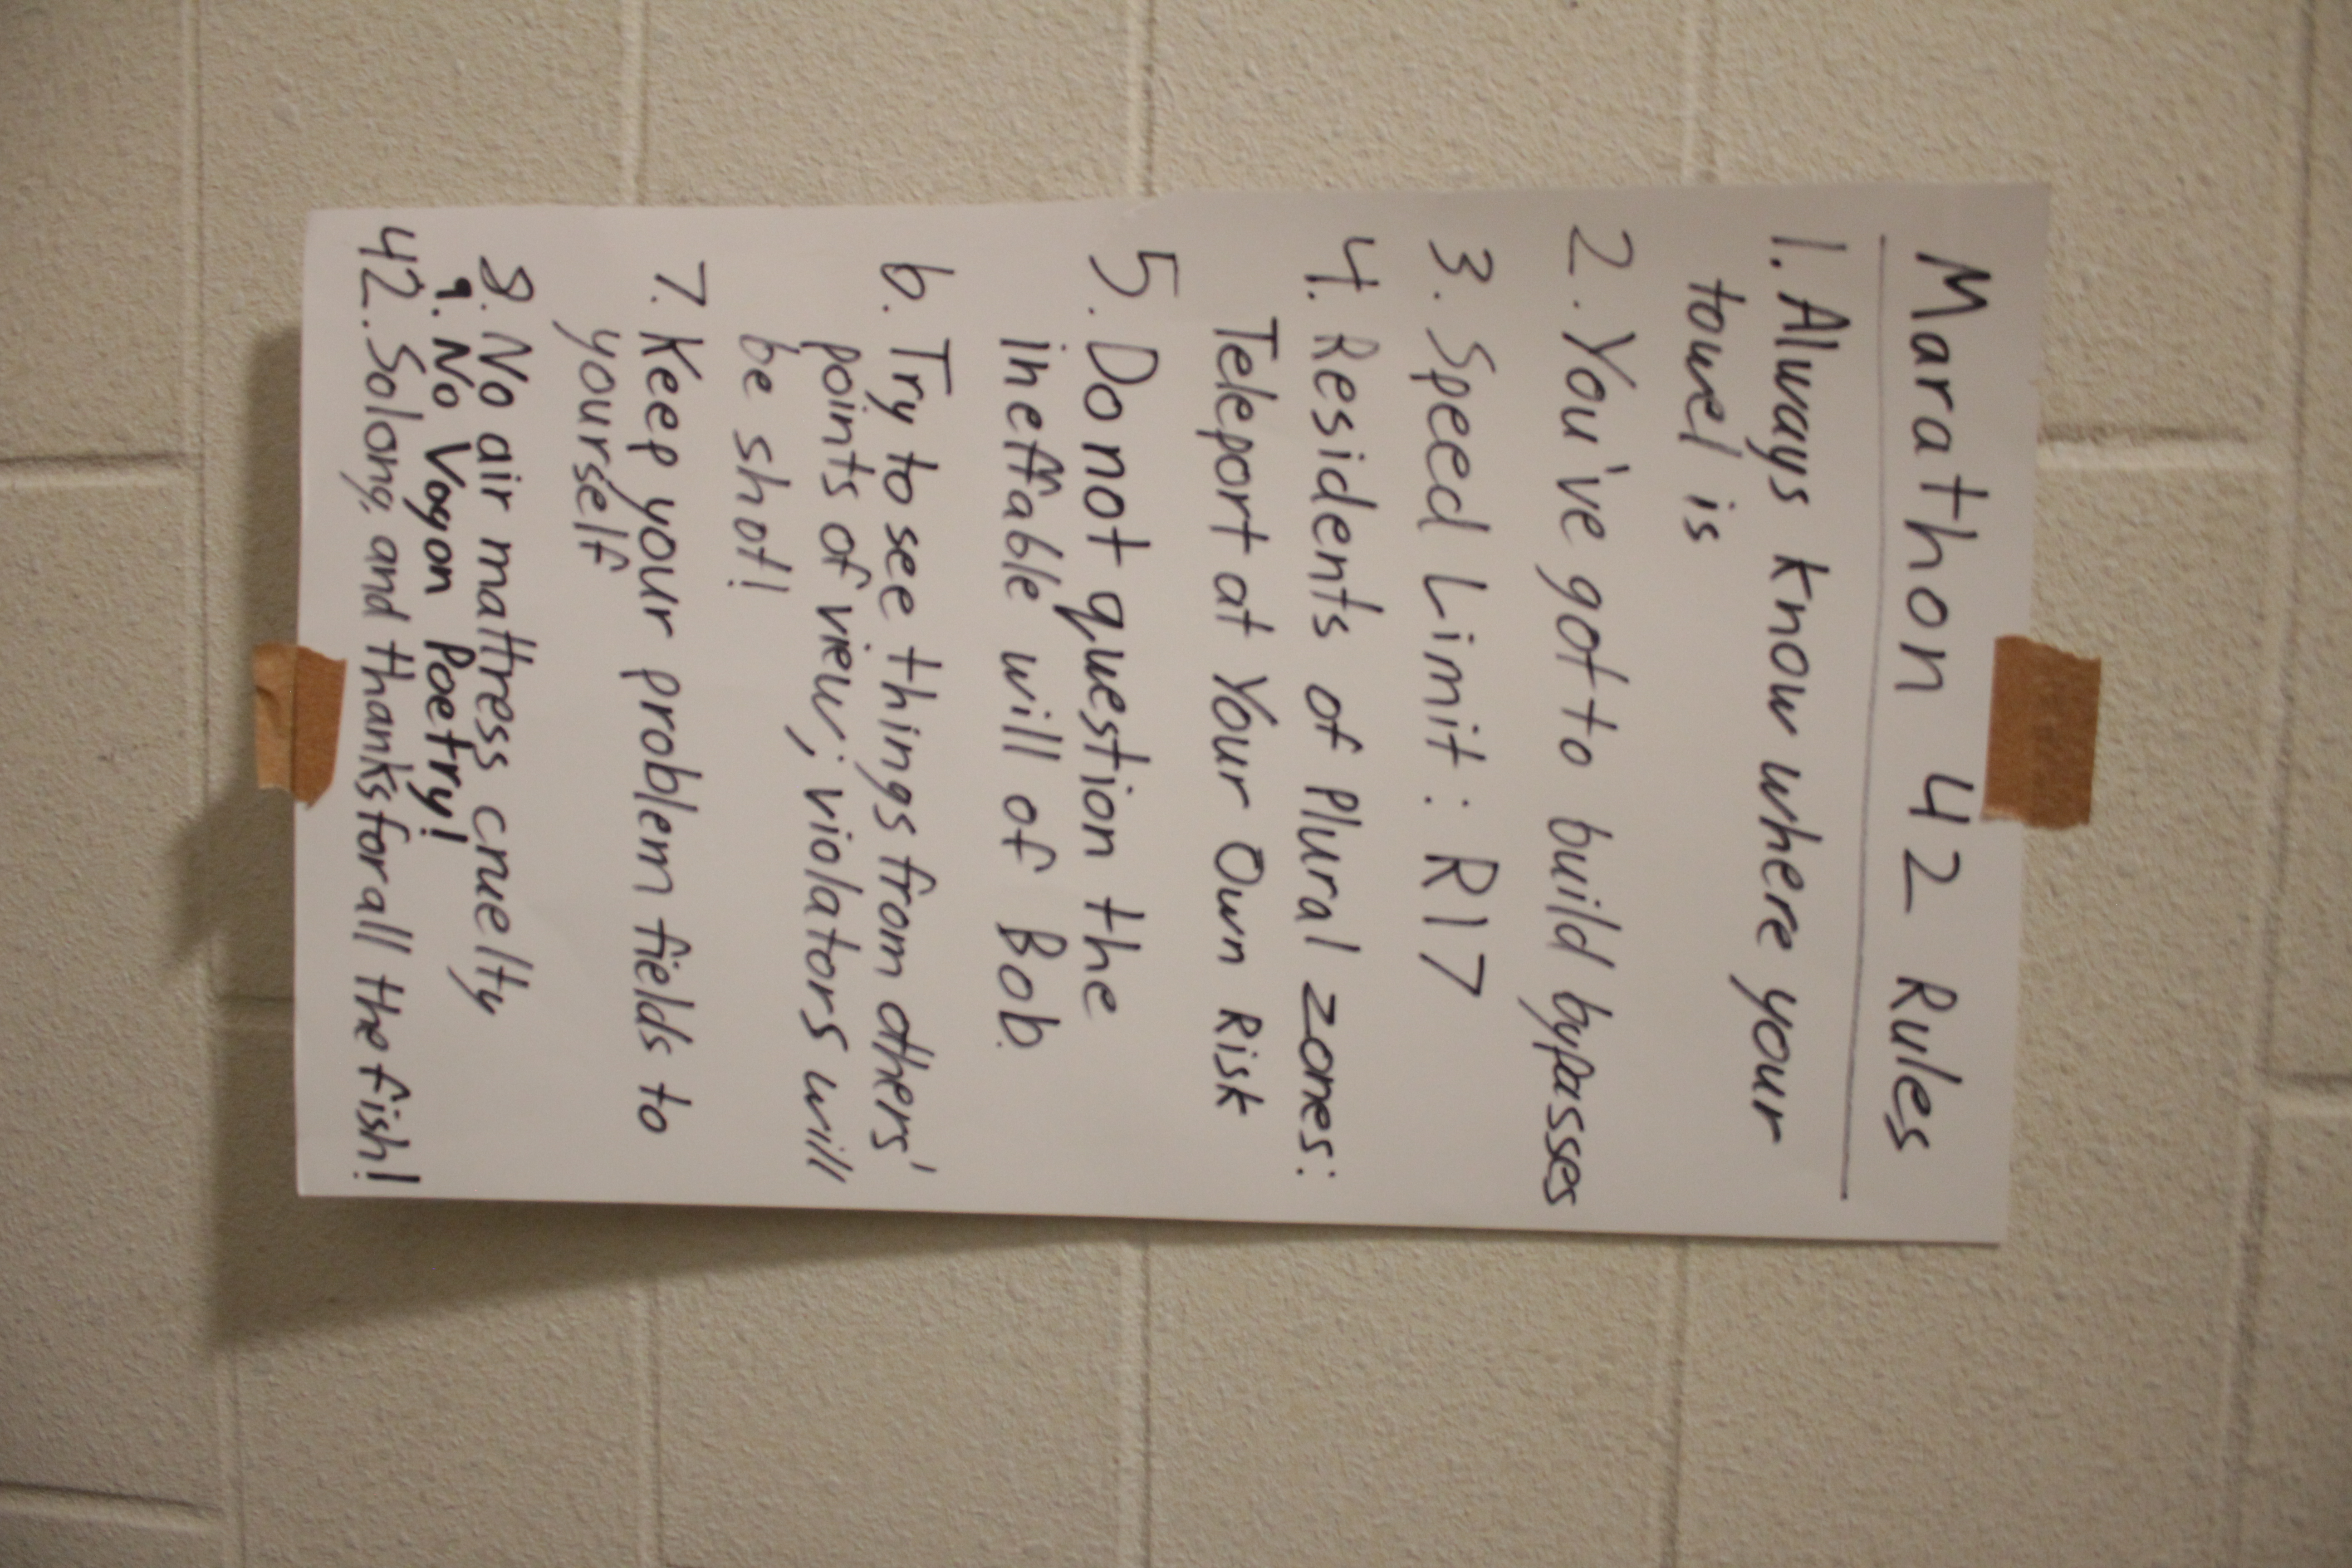 Marathon 42 Rules
1. Always know where your
towel is
2. You've got to build bypasses
3. Speed Limit: R17
4. Residents of Plural zones:
Teleport at Your Own Risk
5. Do not question the
ineffable will of Bob.
6. Try to see things from others'
points of view; violators will
be shot!
7. Keep your problem fields to
yourself
8. No air mattress cruelty
9. No Vogon Poetry!
42. So long, and thanks for all the fish!